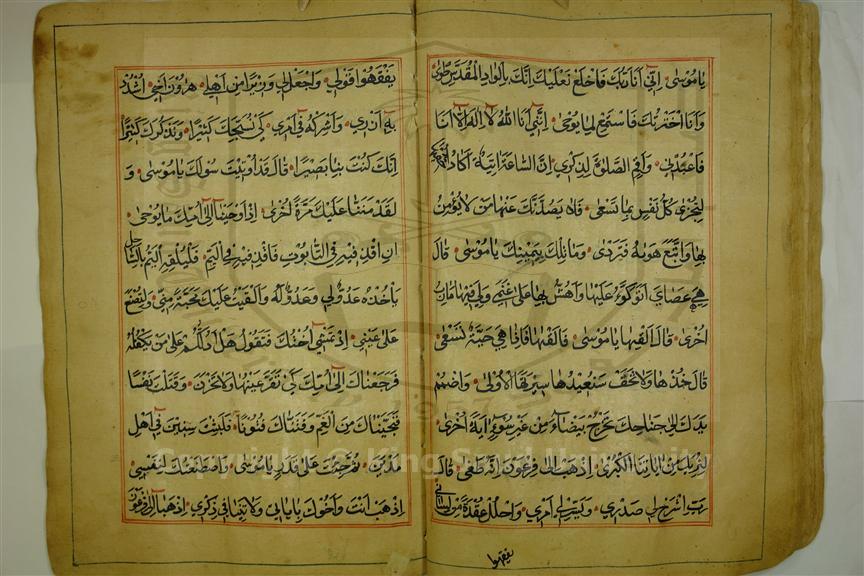 يَا مُوسٰى • اِنّٖي اَنَا رَبُّكَ فَاخْلَعْ نَعْلَيْكَ اِنَّكَ بِالْوَادِ الْمُقَدَّسِ طُوًى
وَاَنَا اخْتَرْتُكَ فَاسْتَمِعْ لِمَا يُوحٰى • اِنَّنٖي اَنَا اللّٰهُ لَا اِلٰهَ اِلَّا اَنَا
فَاعْبُدْنٖي • وَاَقِمِ الصَّلٰوةَ لِذِكْرٖي • اِنَّ السَّاعَةَ اٰتِيَةٌ اَكَادُ اُخْفٖيهَا
لِتُجْزٰى كُلُّ نَفْسٍ بِمَا تَسْعٰى • فَلَا يَصُدَّنَّكَ عَنْهَا مَنْ لَا يُؤْمِنُ
بِهَا وَاتَّبَعَ هَوٰيهُ فَتَرْدٰى • وَمَا تِلْكَ بِيَمٖينِكَ يَا مُوسٰى • قَالَ
هِيَ عَصَايَ اَتَوَكَّؤُ عَلَيْهَا وَاَهُشُّ بِهَا عَلٰى غَنَمٖي وَلِيَ فٖيهَا مَاٰرِبُ
اُخْرٰى • قَالَ اَلْقِهَا يَا مُوسٰى • فَاَلْقٰيهَا فَاِذَا هِيَ حَيَّةٌ تَسْعٰى
قَالَ خُذْهَا وَلَا تَخَفْ سَنُعٖيدُهَا سٖيرَتَهَا الْاُولٰى • وَاضْمُمْ
يَدَكَ اِلٰى جَنَاحِكَ تَخْرُجْ بَيْضَاءَ مِنْ غَيْرِ سُوءٍ اٰيَةً اُخْرٰى •
لِنُرِيَكَ مِنْ اٰيَاتِنَا الْكُبْرٰى • اِذْهَبْ اِلٰى فِرْعَوْنَ اِنَّهُ طَغٰى • قَالَ
رَبِّ اشْرَحْ لٖي صَدْرٖي • وَيَسِّرْ لٖي اَمْرٖي • وَاحْلُلْ عُقْدَةً مِنْ لِسَانٖي
يفقهوا
يَفْقَهُوا قَوْلٖي • وَاجْعَلْ لٖي وَزٖيرًا مِنْ اَهْلٖي • هٰرُونَ اَخٖي • اُشْدُدْ
بِهٖ اَزْرٖي • وَاَشْرِكْهُ فٖي اَمْرٖي • كَيْ نُسَبِّحَكَ كَثٖيرًا • وَنَذْكُرَكَ كَثٖيرًا
اِنَّكَ كُنْتَ بِنَا بَصٖيرًا • قَالَ قَدْ اُوتٖيتَ سُؤْلَكَ يَا مُوسٰى • وَ
لَقَدْ مَنَنَّا عَلَيْكَ مَرَّةً اُخْرٰى • اِذْ اَوْحَيْنَا اِلٰى اُمِّكَ مَا يُوحٰى •
اَنِ اقْذِفٖيهِ فِي التَّابُوتِ فَاقْذِفٖيهِ فِي الْيَمِّ • فَلْيُلْقِهِ الْيَمُّ بِالسَّاحِلِ
يَأْخُذْهُ عَدُوٌّ لٖي وَعَدُوٌّ لَهُ وَاَلْقَيْتُ عَلَيْكَ مَحَبَّةً مِنّٖي • وَلِتُصْنَعَ
عَلٰى عَيْنٖي • اِذْ تَمْشٖي اُخْتُكَ فَتَقُولُ هَلْ اَدُلُّكُمْ عَلٰى مَنْ يَكْفُلُهُ
فَرَجَعْنَاكَ اِلٰى اُمِّكَ كَيْ تَقَرَّ عَيْنُهَا وَلَا تَحْزَنَ • وَقَتَلْتَ نَفْسًا
فَنَجَّيْنَاكَ مِنَ الْغَمِّ وَفَتَنَّاكَ فُتُونًا • فَلَبِثْتَ سِنٖينَ فٖي اَهْلِ
مَدْيَنَ • ثُمَّ جِئْتَ عَلٰى قَدَرٍ يَا مُوسٰى • وَاصْطَنَعْتُكَ لِنَفْسٖي •
اِذْهَبْ اَنْتَ وَاَخُوكَ بِاٰيَاتٖي وَلَا تَنِيَا فٖي ذِكْرٖي • اِذْهَبَا اِلٰى فِرْعَوْنَ